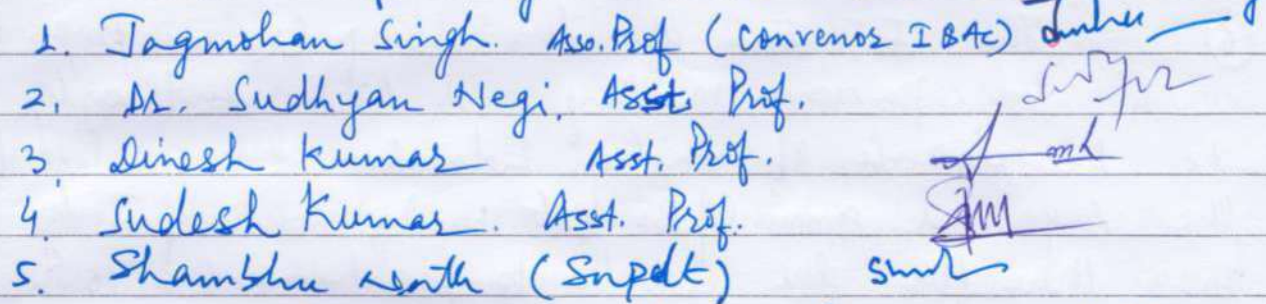 1. Jagmohan Singh. Asso. Prof (Convenor IBAC)
2. Dr. Sudhyan Negi. Asst. Prof.
3. Dinesh Kumar Asst. Prof.
4. Sudesh Kumar. Asst. Prof.
5. Shambhu Nath (Supdt)